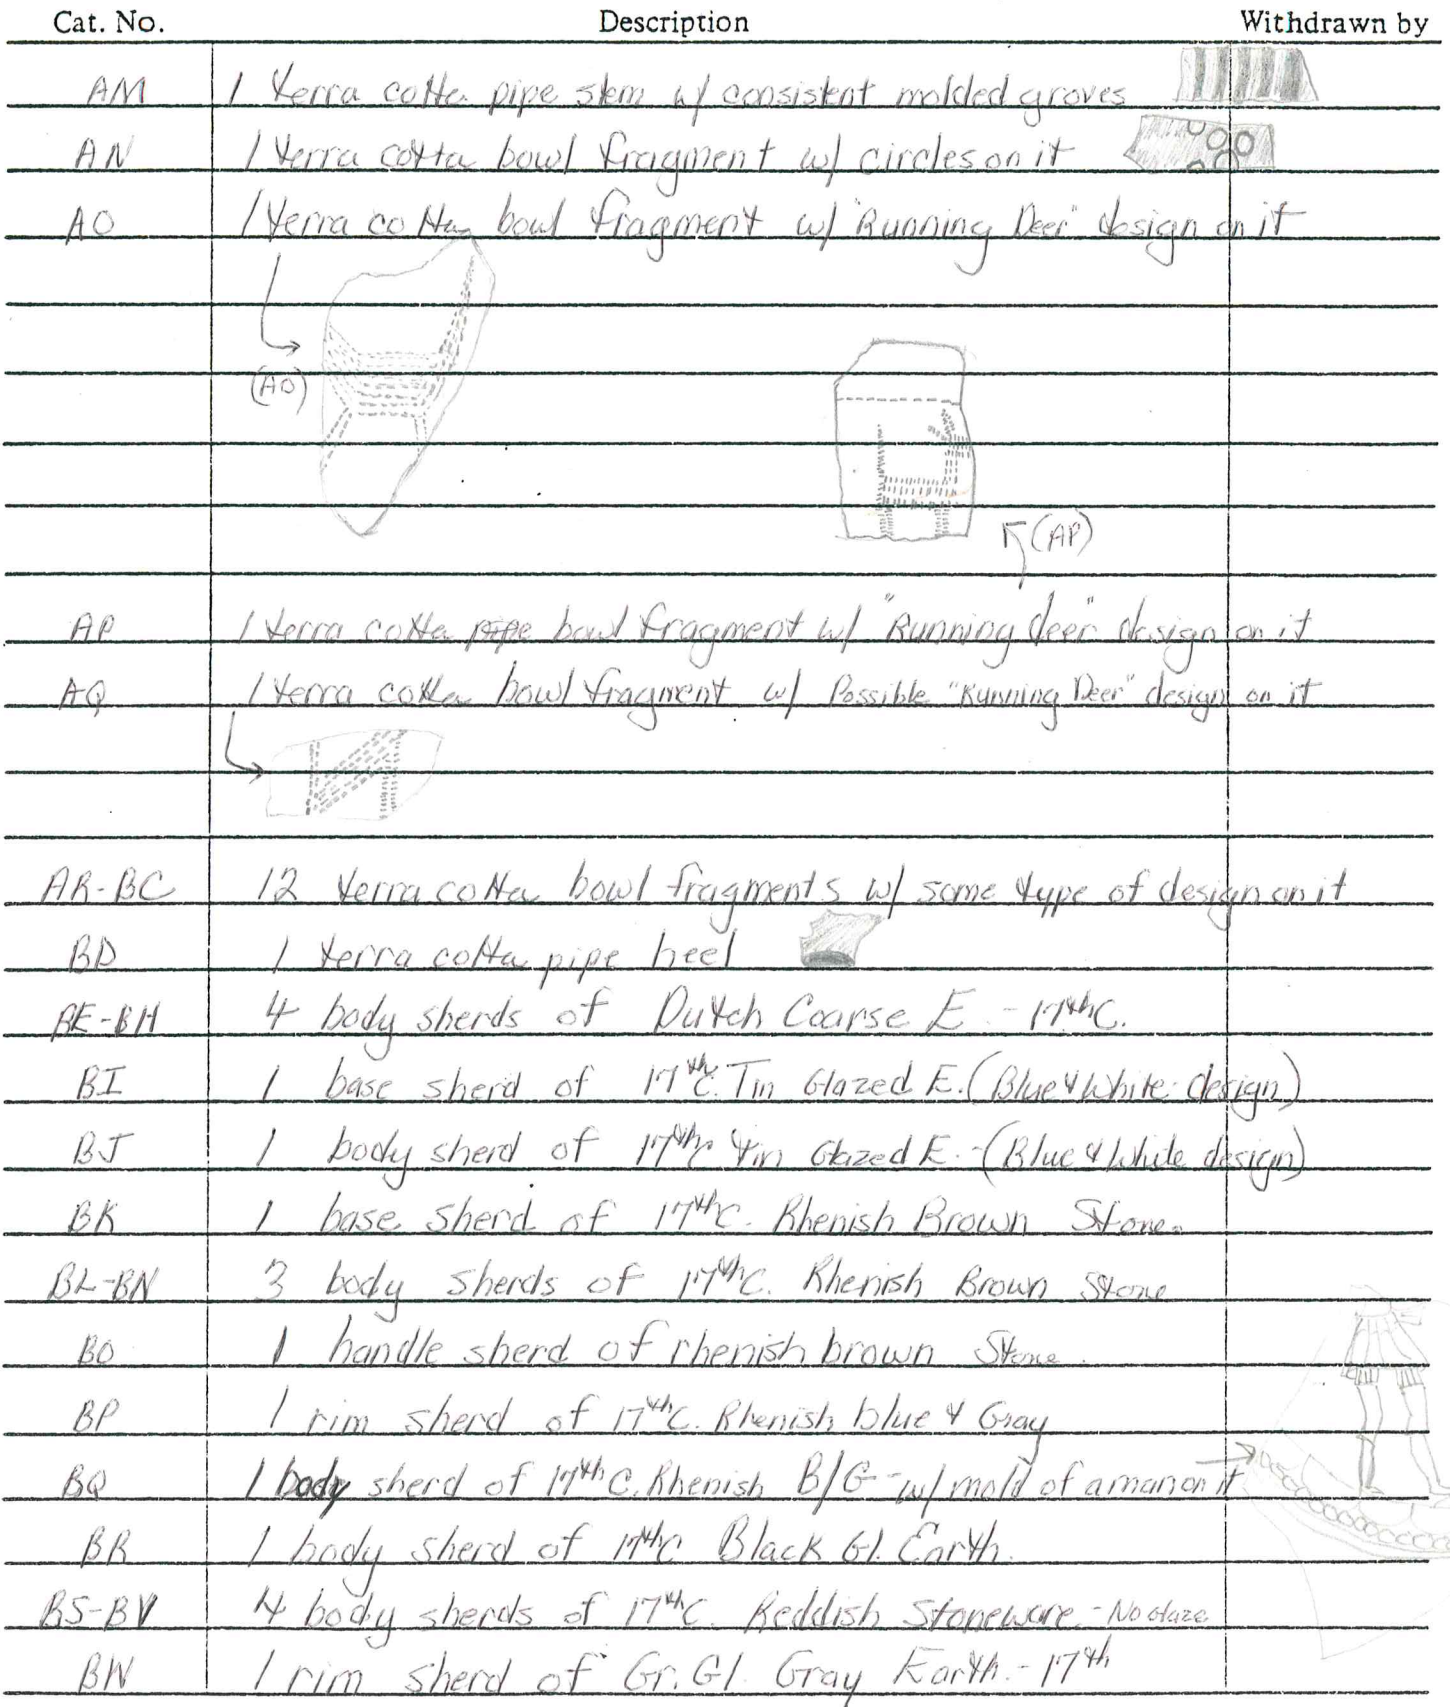 Cat. No. Description Withdrawn by
AM 1 terra cotta pipe stem w/ consistent molded groves
AN 1 terra cotta bowl fragment w/ circles on it
AO 1 terra cotta bowl fragment w/ "Running Deer" design on it
(AO)
(AP)
AP 1 terra cotta pipe bowl fragment w/ "Running deer" design on it
AQ 1 terra cotta bowl fragment w/ Possible "Running Deer" design on it
AR-BC 12 terra cotta bowl fragments w/ some type of design on it
BD 1 terra cotta pipe heel
BE-BH 4 body sherds of Dutch Coarse E - 17thC.
BI 1 base sherd of 17thC. Tin Glazed E. (Blue & White design)
BJ 1 body sherd of 17thC Tin Glazed E. - (Blue & White design)
BK 1 base sherd of 17thC. Rhenish Brown Stone.
BL-BN 3 body sherds of 17thC. Rhenish Brown Stone
BO 1 handle sherd of rhenish brown Stone.
BP 1 rim sherd of 17thC. Rhenish blue & Gray
BQ 1 body sherd of 17thC. Rhenish B/G - w/ mold of a man on it
BR 1 body sherd of 17thC Black Gl. Earth.
BS-BV 4 body sherds of 17thC. Reddish Stoneware - No Glaze
BW 1 rim sherd of Gr. Gl. Gray Earth. - 17th